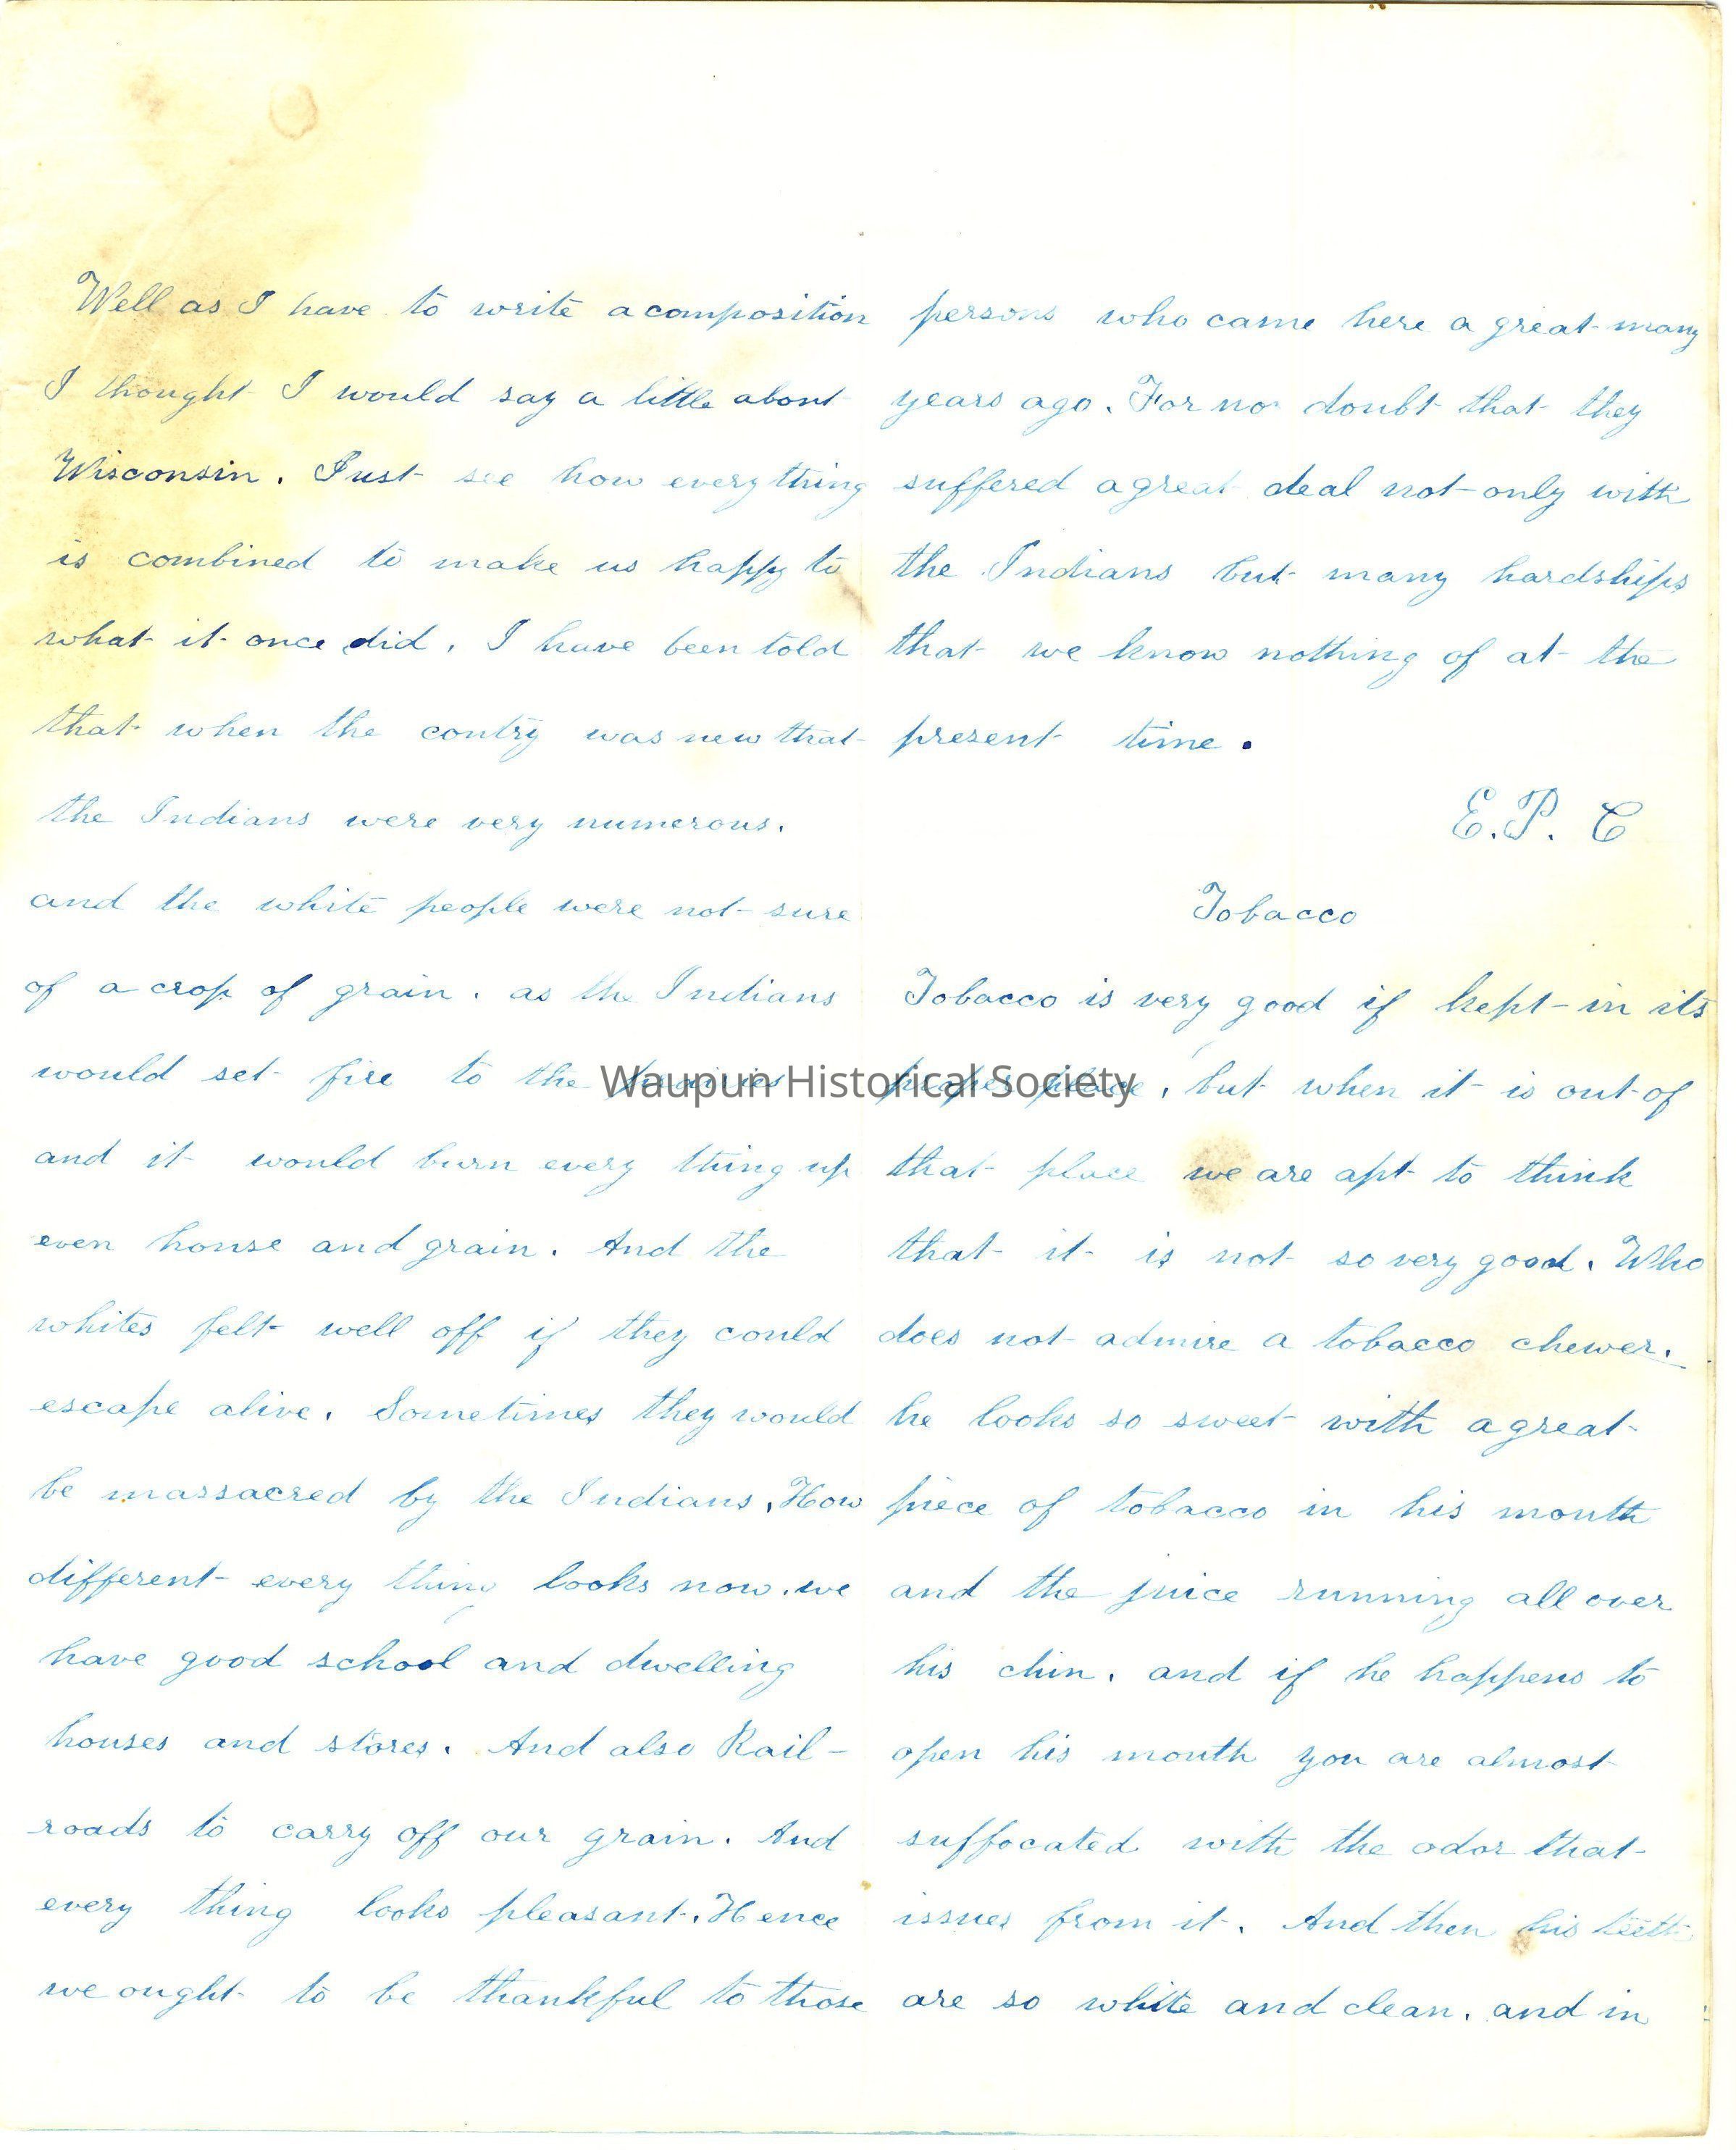 Well as I have to write a composition
I thought I would say a little about
Wisconsin. Just see how everything
is combined to make us happy to
what it once did. I have been told
that when the contry was new that
the Indians were very numerous.
and the white people were not sure
of a crop of grain. as the Indians
would set fire to the prairies
and it would burn every thing up
even house and grain. And the
whites felt well off if they could
escape alive. Sometimes they would
be massacred by the Indians. How
different every thing looks now. we
have good school and dwelling
houses and stores. And also Rail-
roads to carry off our grain. And
every thing looks pleasant. Hence
we ought to be thankful to those
persons who came here a great many
years ago. For no doubt that they
suffered a great deal not only with
the Indians but many hardships
that we know nothing of at the
present time.
E.P. C
Tobacco
Tobacco is very good if kept in its
proper place, but when it is out of
that place we are apt to think
that it is not so very good. Who
does not admire a tobacco chewer.
he looks so sweet with a great
piece of tobacco in his mouth
and the juice running all over
his chin. and if he happens to
open his mouth you are almost
suffocated with the odor that
issues from it. And then his teeth
are so white and clean. and in
Waupun Historical Society